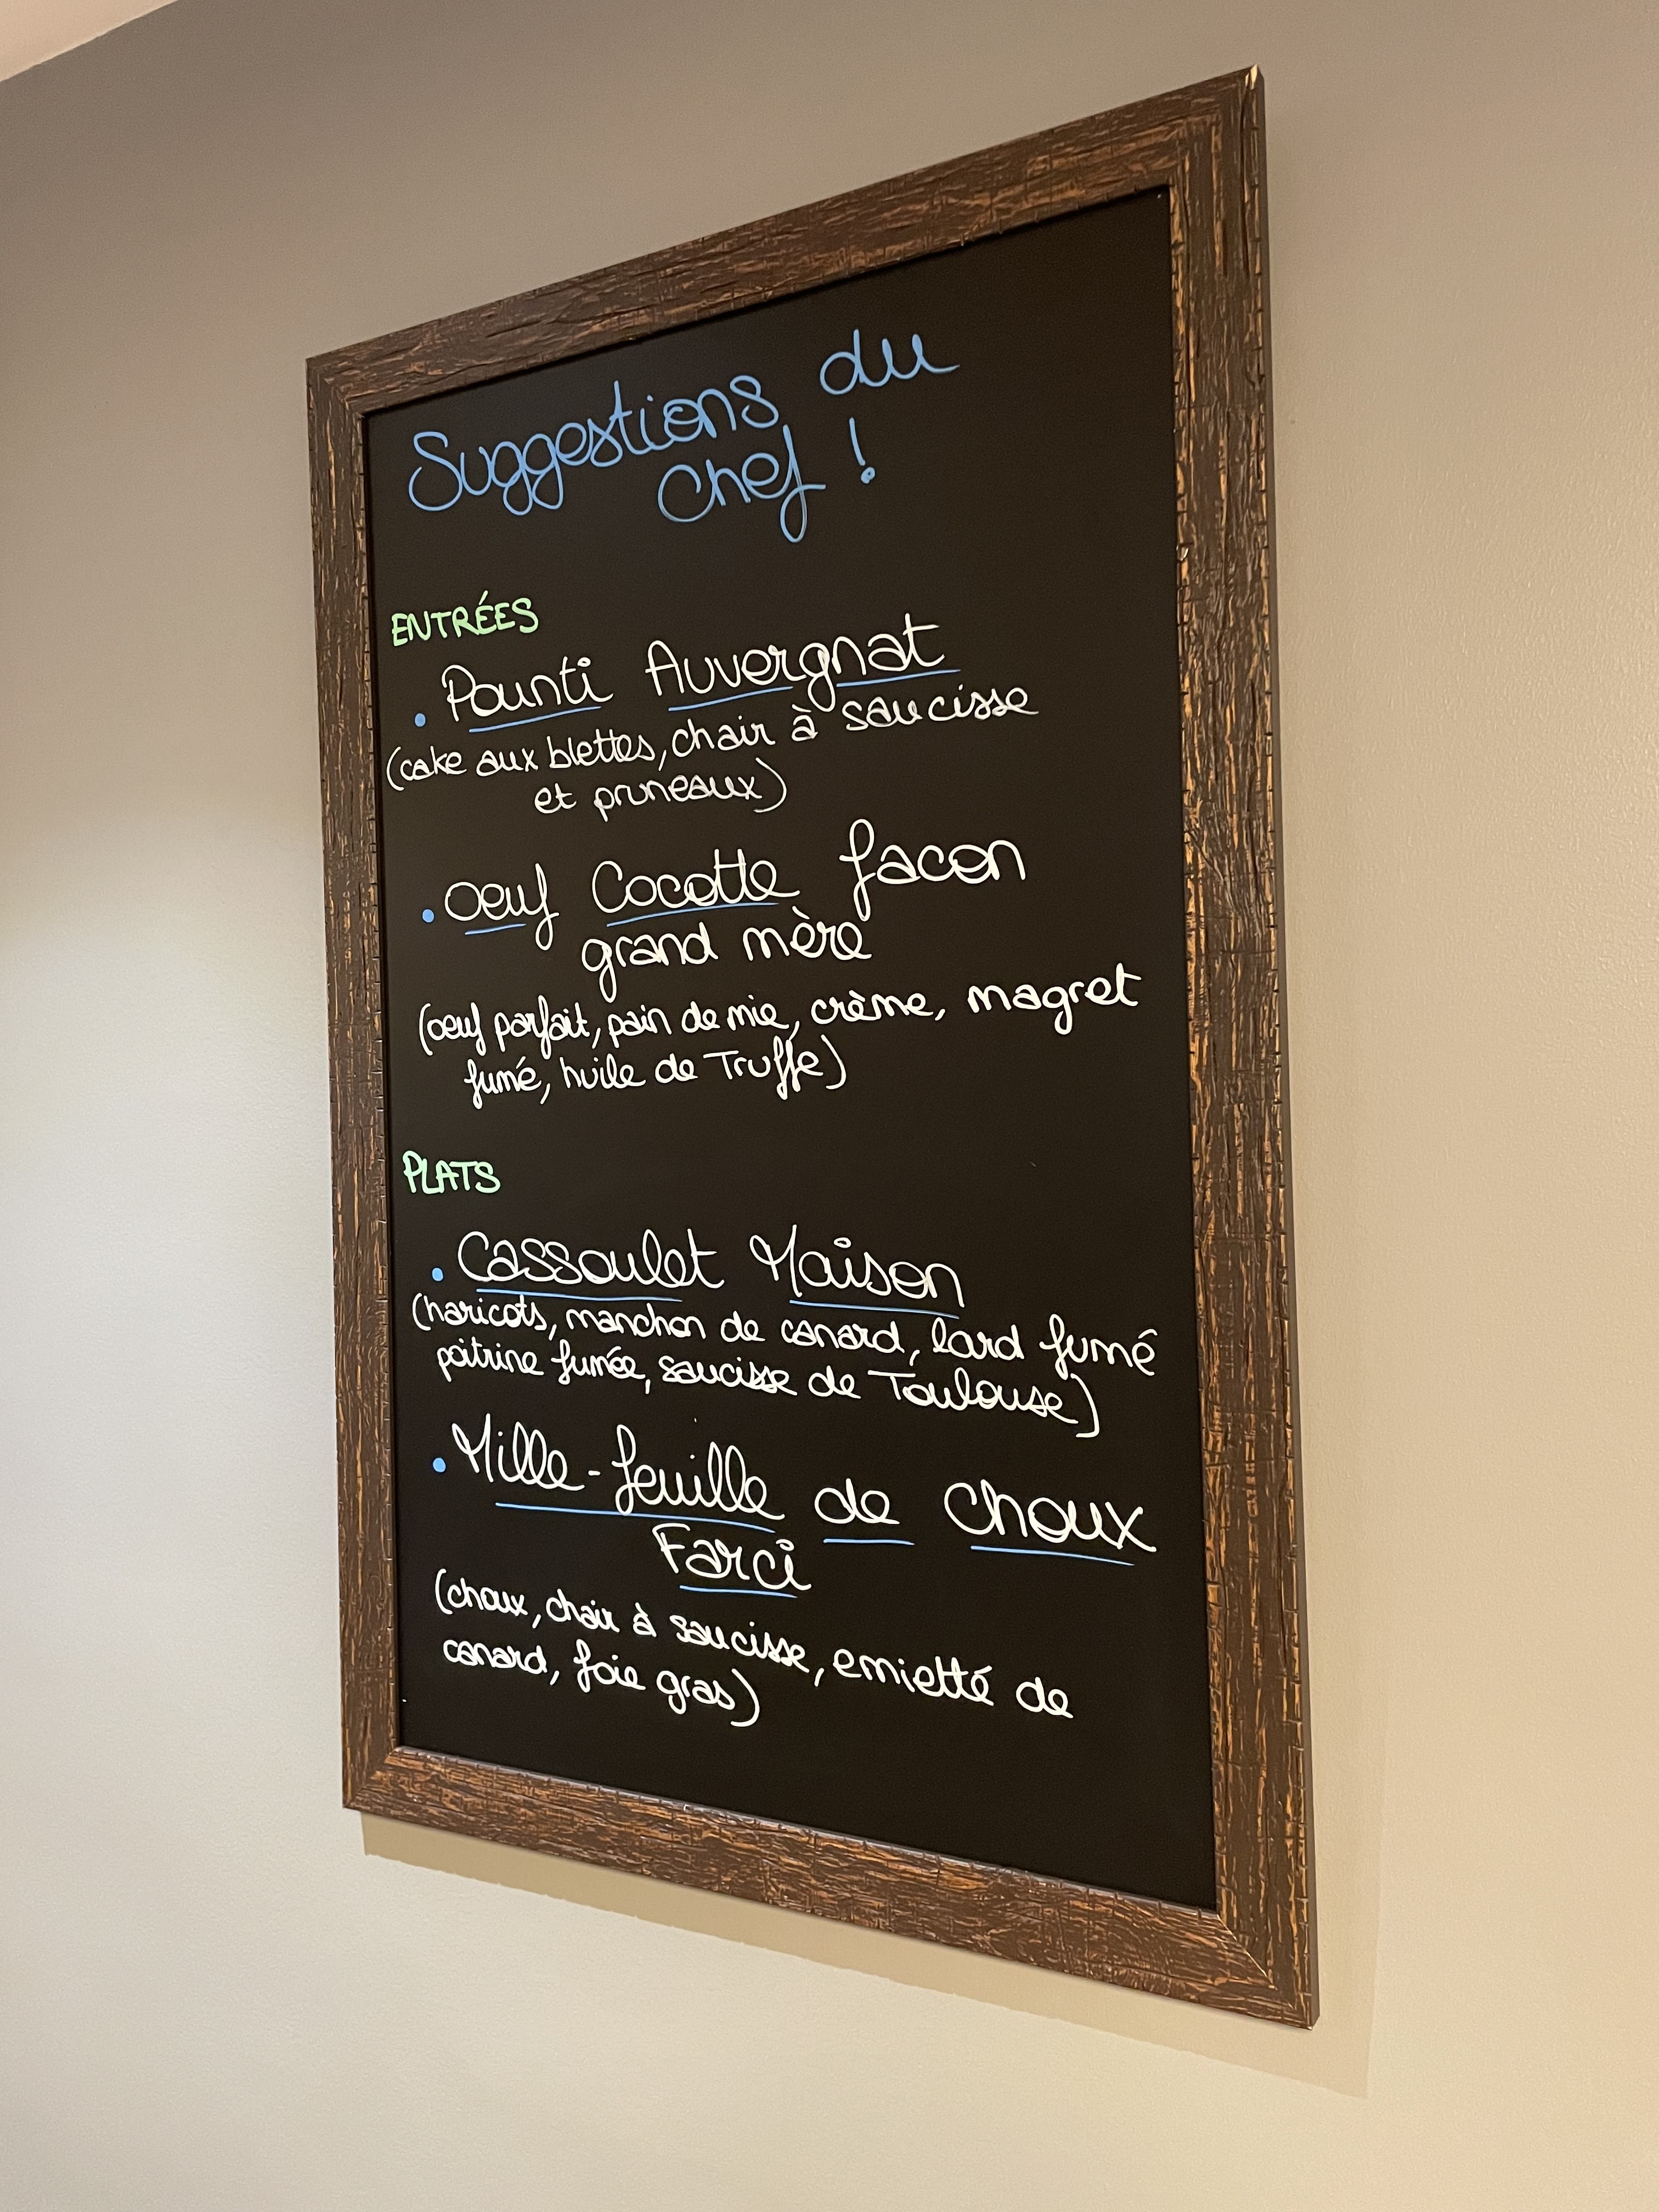 Suggestions du
Chef !
ENTRÉES
. Pounti Auvergnat
(cake aux blettes, chair à saucisse
et pruneaux)
. Oeuf Cocotte facon
grand mère
(oeuf parfait, pain de mie, crème, magret
fumé, huile de Truffe)
PLATS
. Cassoulet Maison
(haricots, manchon de canard, lard fumé
poitrine fumée, saucisse de Toulouse)
. Mille-feuille de choux
Farci
(choux, chair à saucisse, emietté de
canard, foie gras)